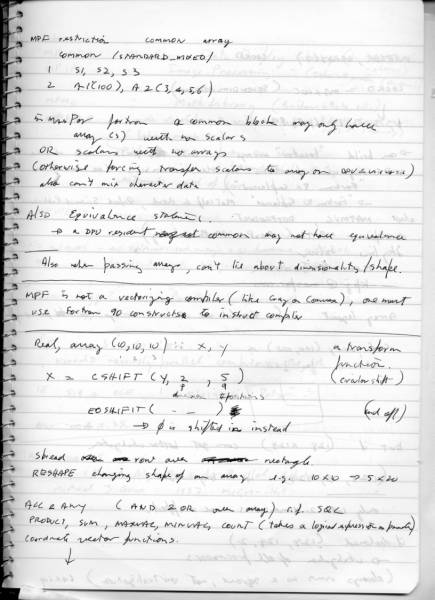 MPF restriction common array
common /STANDARD_MIXED/
1 S1, S2, S3
2 A1(100), A2(3,4,5,6)
in MasPar fortran a common block may only have
array(s) with no scalars
OR scalars with no arrays
(otherwise forcing transfer scalars to array on
also can't mix character data
Also Equivalence statement.
→ a DPU resident common may not have equivalence
Also when passing arrays, can't lie about dimensionality/shape.
MPF is not a vectorizing compiler (like Cray or Convex), one must
use Fortran 90 constructs to instruct compiler
Real, array (10,10,10) :: X, Y a transform
function.
X = CSHIFT (Y, 2, 5) (circular shift)
dimension #positions
EOSHIFIT ( - - ) (end off)
→ 0 is shifted in instead
spread row over rectangle.
RESHAPE changing shape of an array e.g. 10x10 → 5x20
ALL & ANY (AND & OR over array) c.f. SQL
PRODUCT, SUM, MAXVAL, MINVAL, COUNT (takes a logical expression as parameter)
coordinate vector functions.
↓